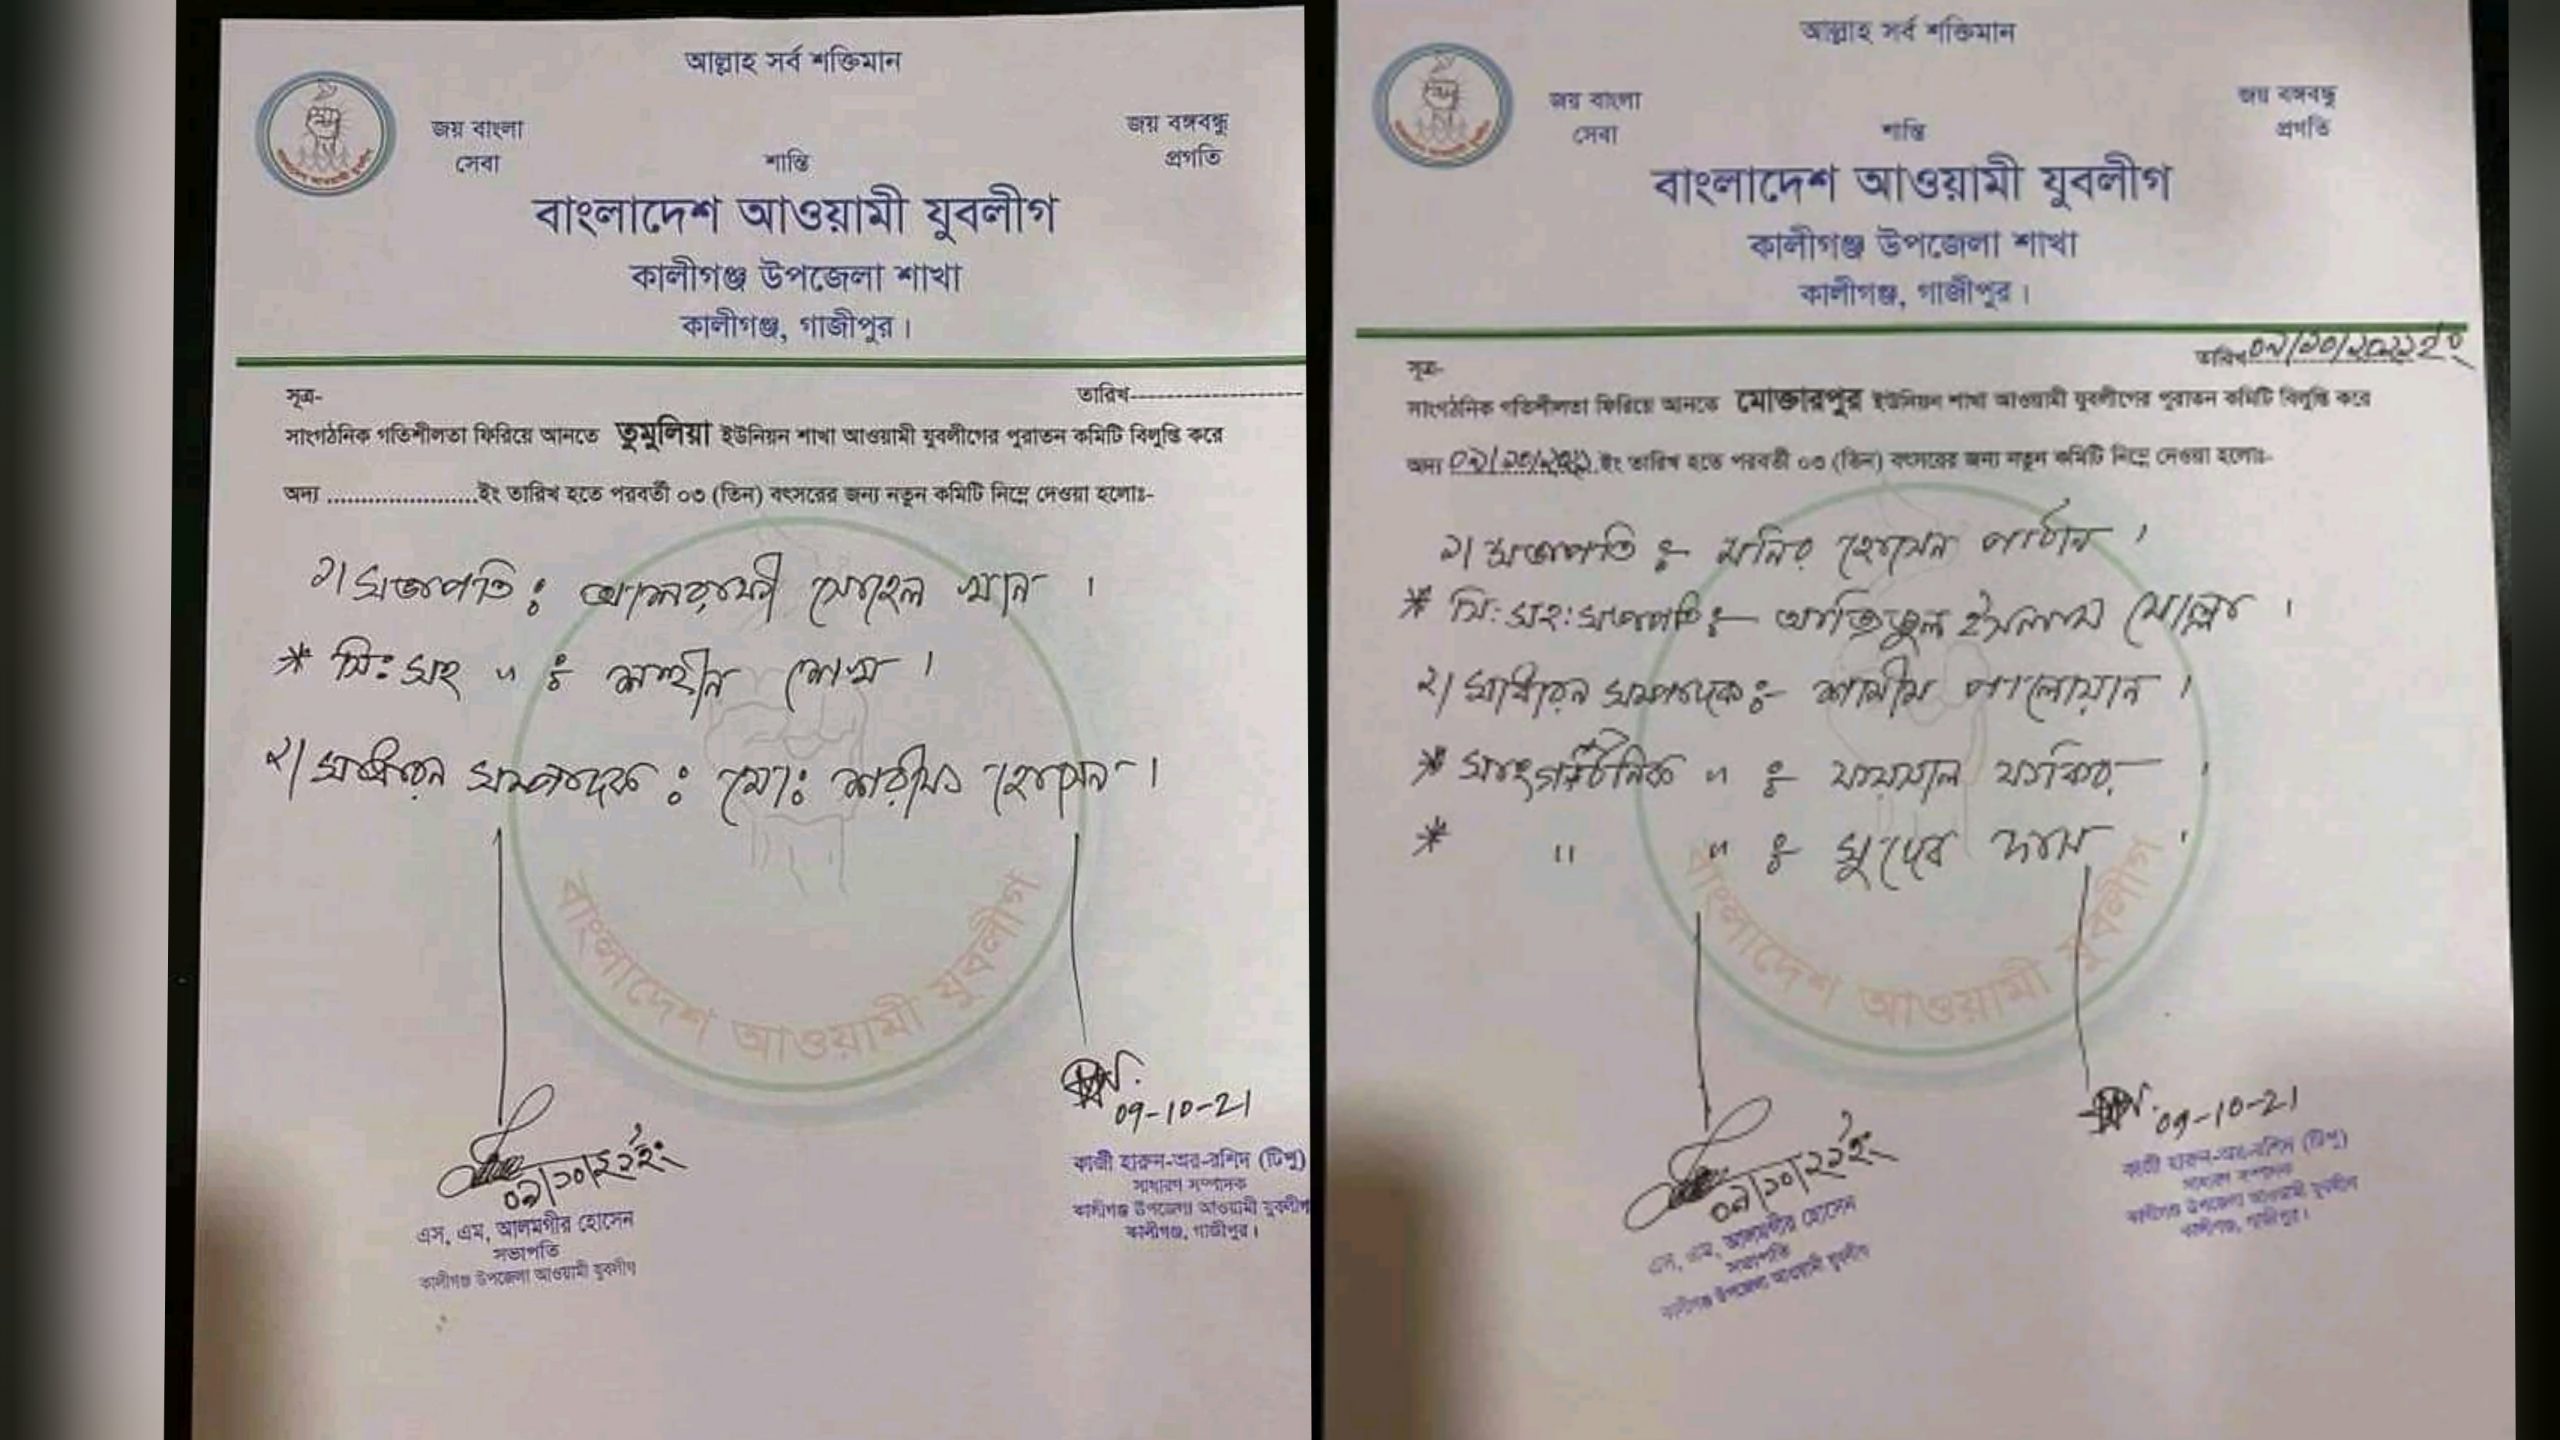 আল্লাহ সর্ব শক্তিমান
জয় বাংলা
জয় বঙ্গবন্ধু
সেবা
শান্তি
প্রগতি
বাংলাদেশ আওয়ামী যুবলীগ
কালীগঞ্জ উপজেলা শাখা
কালীগঞ্জ, গাজীপুর।
সূত্র-
তারিখ
সাংগঠনিক গতিশীলতা ফিরিয়ে আনতে তুমুলিয়া ইউনিয়ন শাখা আওয়ামী যুবলীগের পুরাতন কমিটি বিলুপ্তি করে
অদ্য ......................ইং তারিখ হতে পরবর্তী ০৩ (তিন) বৎসরের জন্য নতুন কমিটি নিম্নে দেওয়া হলোঃ-
১। সভাপতি : সোহেল খান ।
* সি: সহ " : শাহীন শেখ ।
২। সাধারন সম্পাদক : মো: শরীফ হোসেন ।
বাংলাদেশ আওয়ামী যুবলীগ
09-10-21
০৯/১০/২১ইং
এস, এম, আলমগীর হোসেন
সভাপতি
কালীগঞ্জ উপজেলা আওয়ামী যুবলীগ
কাজী হারুন-অর-রশিদ (টিপু)
সাধারণ সম্পাদক
কালীগঞ্জ উপজেলা আওয়ামী যুবলীগ
কালীগঞ্জ, গাজীপুর।
আল্লাহ সর্ব শক্তিমান
জয় বাংলা
জয় বঙ্গবন্ধু
সেবা
শান্তি
প্রগতি
বাংলাদেশ আওয়ামী যুবলীগ
কালীগঞ্জ উপজেলা শাখা
কালীগঞ্জ, গাজীপুর।
সূত্র-
তারিখ ০৯/১০/২০২১ইং
সাংগঠনিক গতিশীলতা ফিরিয়ে আনতে মোক্তারপুর ইউনিয়ন শাখা আওয়ামী যুবলীগের পুরাতন কমিটি বিলুপ্তি করে
অদ্য ০৯/১০/২০২১ ইং তারিখ হতে পরবর্তী ০৩ (তিন) বৎসরের জন্য নতুন কমিটি নিম্নে দেওয়া হলোঃ-
১। সভাপতি :- মনির হোসেন পাঠান ।
* সি: সহ: সভাপতি :- ইসলাম মোল্লা ।
২। সাধারন সম্পাদক :- শামীম পালোয়ান ।
* সাংগঠনিক " :- ফয়সাল ফকির ।
* " " :- সুদেব দাস ।
বাংলাদেশ আওয়ামী যুবলীগ
09-10-21
০৯/১০/২১ইং
এস, এম, আলমগীর হোসেন
সভাপতি
কালীগঞ্জ উপজেলা আওয়ামী যুবলীগ
কাজী হারুন-অর-রশিদ (টিপু)
সাধারণ সম্পাদক
কালীগঞ্জ উপজেলা আওয়ামী যুবলীগ
কালীগঞ্জ, গাজীপুর।